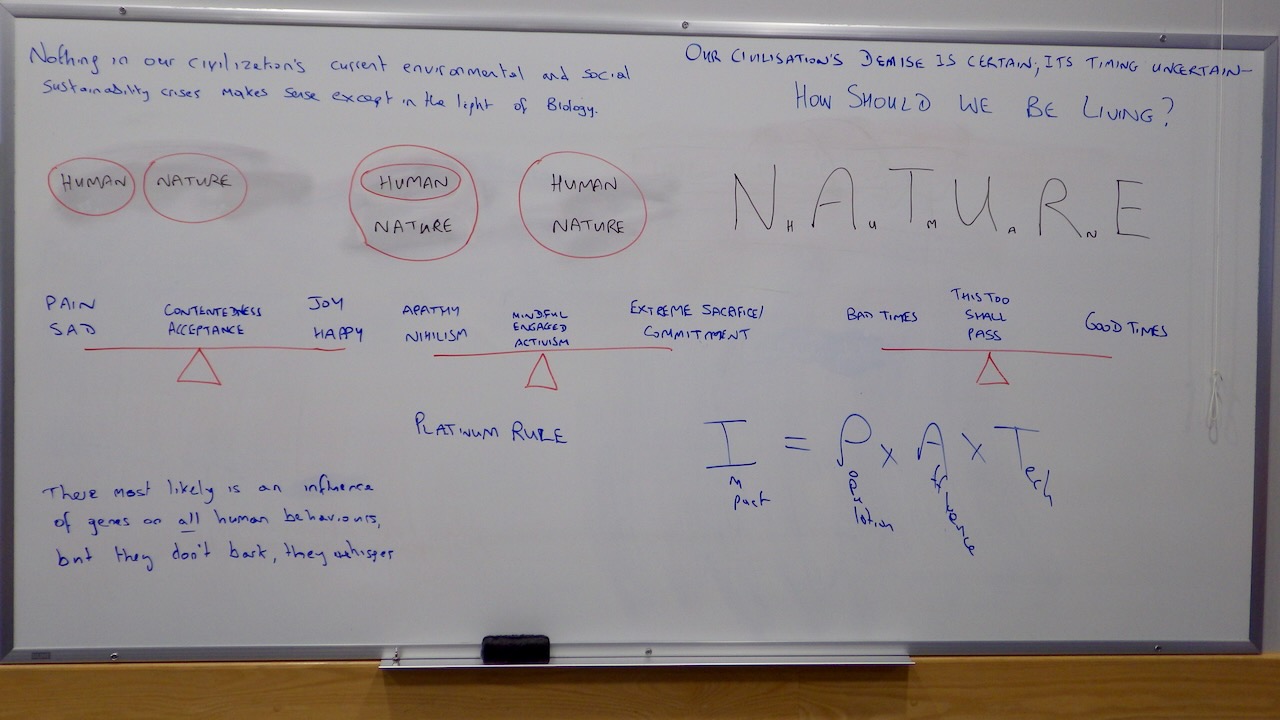 Nothing in our civilization's current environmental and social
sustainability crises makes sense except in the light of Biology.
OUR CIVILISATION'S DEMISE IS CERTAIN, ITS TIMING UNCERTAIN—
HOW SHOULD WE BE LIVING?
HUMAN NATURE
HUMAN
NATURE
HUMAN
NATURE
N H A U T M U A R N E
PAIN
SAD
CONTENTEDNESS
ACCEPTANCE
JOY
HAPPY
APATHY
NIHILISM
MINDFUL
ENGAGED
ACTIVISM
EXTREME SACRIFICE/
COMMITMENT
BAD TIMES
THIS TOO
SHALL
PASS
GOOD TIMES
PLATINUM RULE
Impact = Population x Affluence x Tech
There most likely is an influence
of genes on all human behaviours,
but they don't bark, they whisper